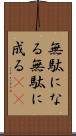 無駄にな
る無駄に
成る((